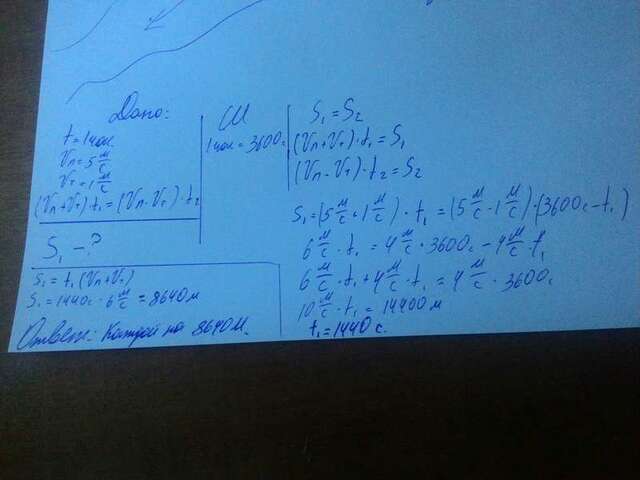 Дано:
t = 1 час.
Vп = 5 м/с
Vт = 1 м/с
(Vп+Vт)·t₁ = (Vп-Vт)·t₂
S₁ - ?
СИ
1 час = 3600с
S₁ = S₂
(Vп+Vт)·t₁ = S₁
(Vп-Vт)·t₂ = S₂
S₁ = (5 м/с + 1 м/с)·t₁ = (5 м/с - 1 м/с)·(3600с - t₁)
6 м/с · t₁ = 4 м/с · 3600с - 4 м/с · t₁
6 м/с · t₁ + 4 м/с · t₁ = 4 м/с · 3600с
10 м/с · t₁ = 14400м
t₁ = 1440с.
S₁ = t₁ (Vп+Vт)
S₁ = 1440с · 6 м/с = 8640м
Ответ: на 8640м.